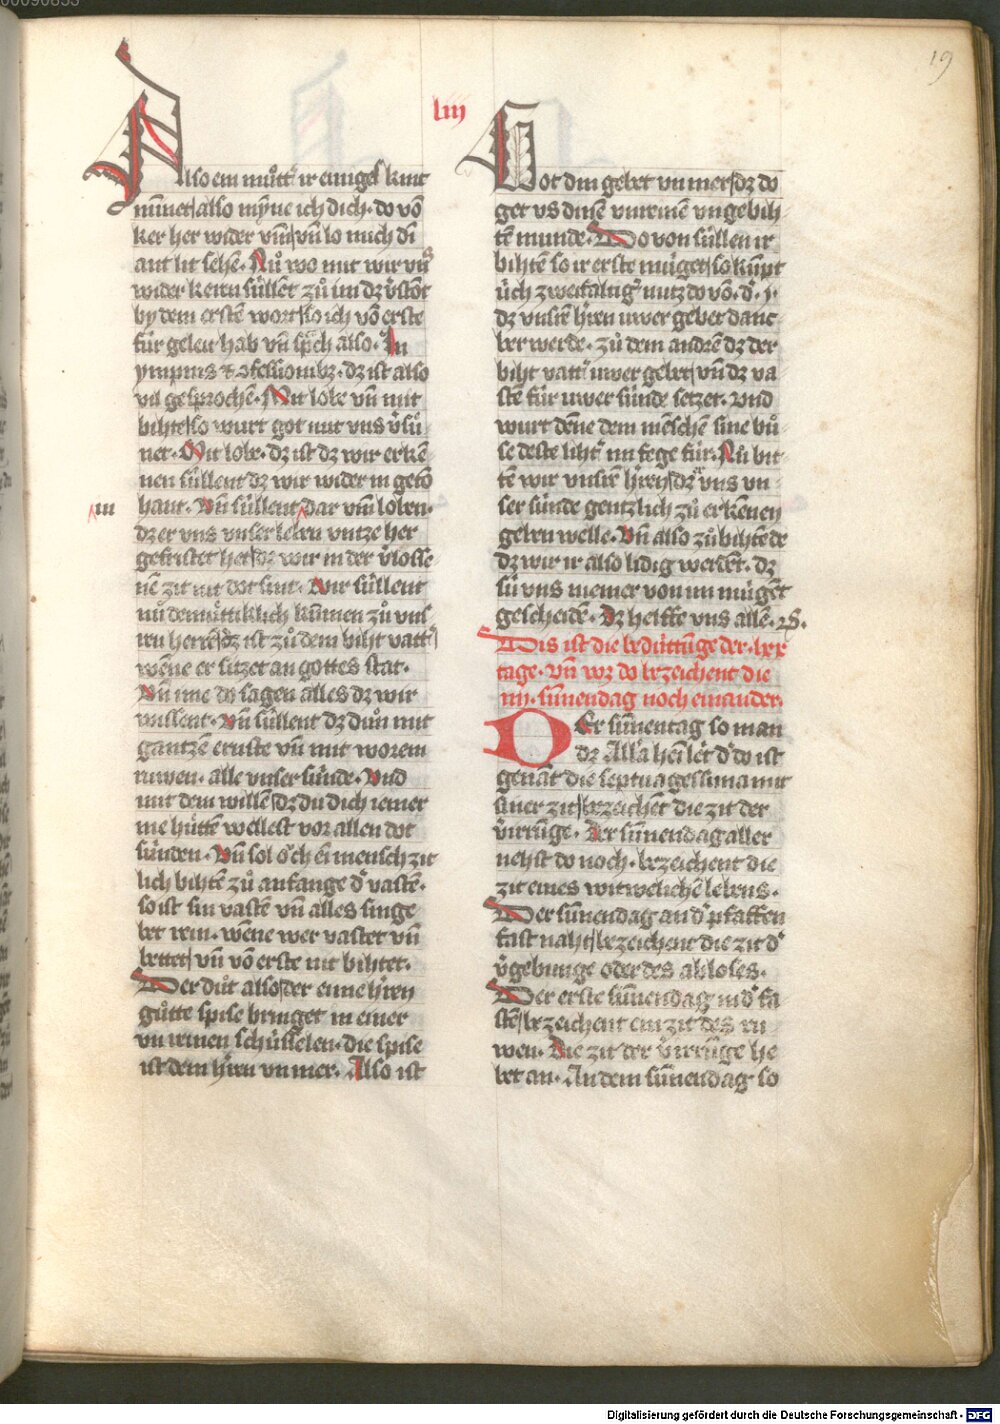 00090853
19
liii
Also ein můtt ir einiges kint
minnet also mÿne ich dich · do vō
ker her wider vm̄ vn̄ lo mich di
ant lit sehē · Nů wo mit wir vns
wider keren süllēt zů im dz v̓stōt
by dem erstē wort so ich vō erste
für geleit hab vn̄ sp̄ch also · In
ympnis & ꝯfessionibꝫ · dz ist also
vil gesprochē · Mit lobe vn̄ mit
bihte so wurt got mit vns v̓sů
net · Mit lobe · dz ist dz wir erkē
nen süllent dz wir wider in getō
hant · Vn̄ süllent dar vm̄ loben ·
dz er vns vnser leben vntze her
gefristet het dz wir in der v̓losse
nē zit nit dot sint · Wir süllent
iii
nů demůttiklich kummen zů vns
ren herrē dz ist zů dem biht vatt̓
wēne er sitzet an gottes stat ·
Vn̄ ime do sagen alles dz wir
wissent · Vn̄ süllent dz důn mit
gantzē ernste vn̄ mit worem
ruwen · alle vnser sünde · Vnd
mit dem willē dz du dich iemer
me hüttē wellest vor allen dot
sünden · Vn̄ sol och ein mensch zit
lich bihtē zů anfange d̓ vastē ·
so ist sin vastē vn̄ alles singe
bet rein · wene wer vastet vn̄
bettet vn̄ vō erste nit bihtet ·
Der důt also der eime h̓ren
gůtte spise bringet in einer
vn reinen schüsselen · die spise
ist dem h̓ren vnmer · Also ist
Got din gebet vnmer dz do
get vs dinē vnreinē vngebih
tē munde · Do von süllen ir
bihtē so ir erste müget so kumpt
üch zweifaltig̓ nutz do vō · d̓ · j ·
dz vnsrē h̓ren uwer gebet danc
ber werde · zů dem andrē dz der
biht vatt̓ uwer gebet vn̄ dz va
stē für uwer sünde setzet · Vnd
wurt dēne dem mēschē sine bů
se deste liht̓ im fege für · Nů bit
tē wir vnsrē h̓ren dz er vns vn
ser sünde gentzlich zů erkēnen
geben welle · Vn̄ also zů bihtēde
dz wir ir also lidig werdēt · dz
sü vns niemer von im mügēt
gescheidē · Dz helffe vns allē ·
Dis ist die bedüttūge der · lxx
tage · Vn̄ wz do bezeichent die
iiii · sunnendag noch einander ·
Der sunnentag so man
dz Alla hen leit d̓ do ist
genāt die septuagessima mit
siner zit bezeichēt die zit der
v̓irrūge · Der sunnendag aller
nehst do noch · bezeichent die
zit eines witwelichē lebens ·
Der sunnendag an d̓ pfaffen
fast naht bezeichent die zit d̓
v̓gebunge oder des abloses ·
Der erste sunnendag in d̓ fa
stē bezeichent ein zit des ru
wen · Die zit der v̓irrūge he
bet an · An dem sunnendag so
Digitalisierung gefördert durch die Deutsche Forschungsgemeinschaft - DFG